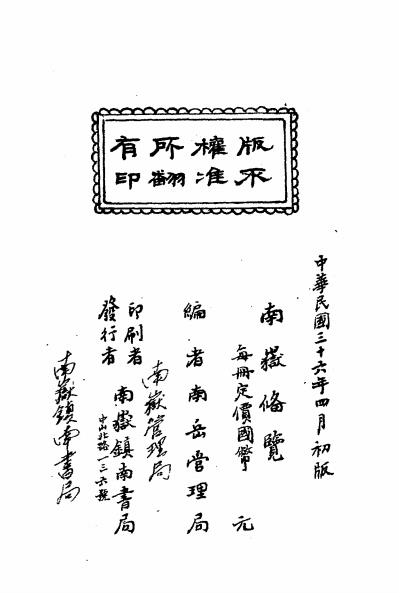 版權所有
不准翻印
中華民國三十六年四月初版
南嶽俻覽
每冊定價國幣 元
編者南岳管理局
南嶽管理局
印刷者
發行者
南嶽鎮南書局
中山北路一三六號
南嶽鎮南書局